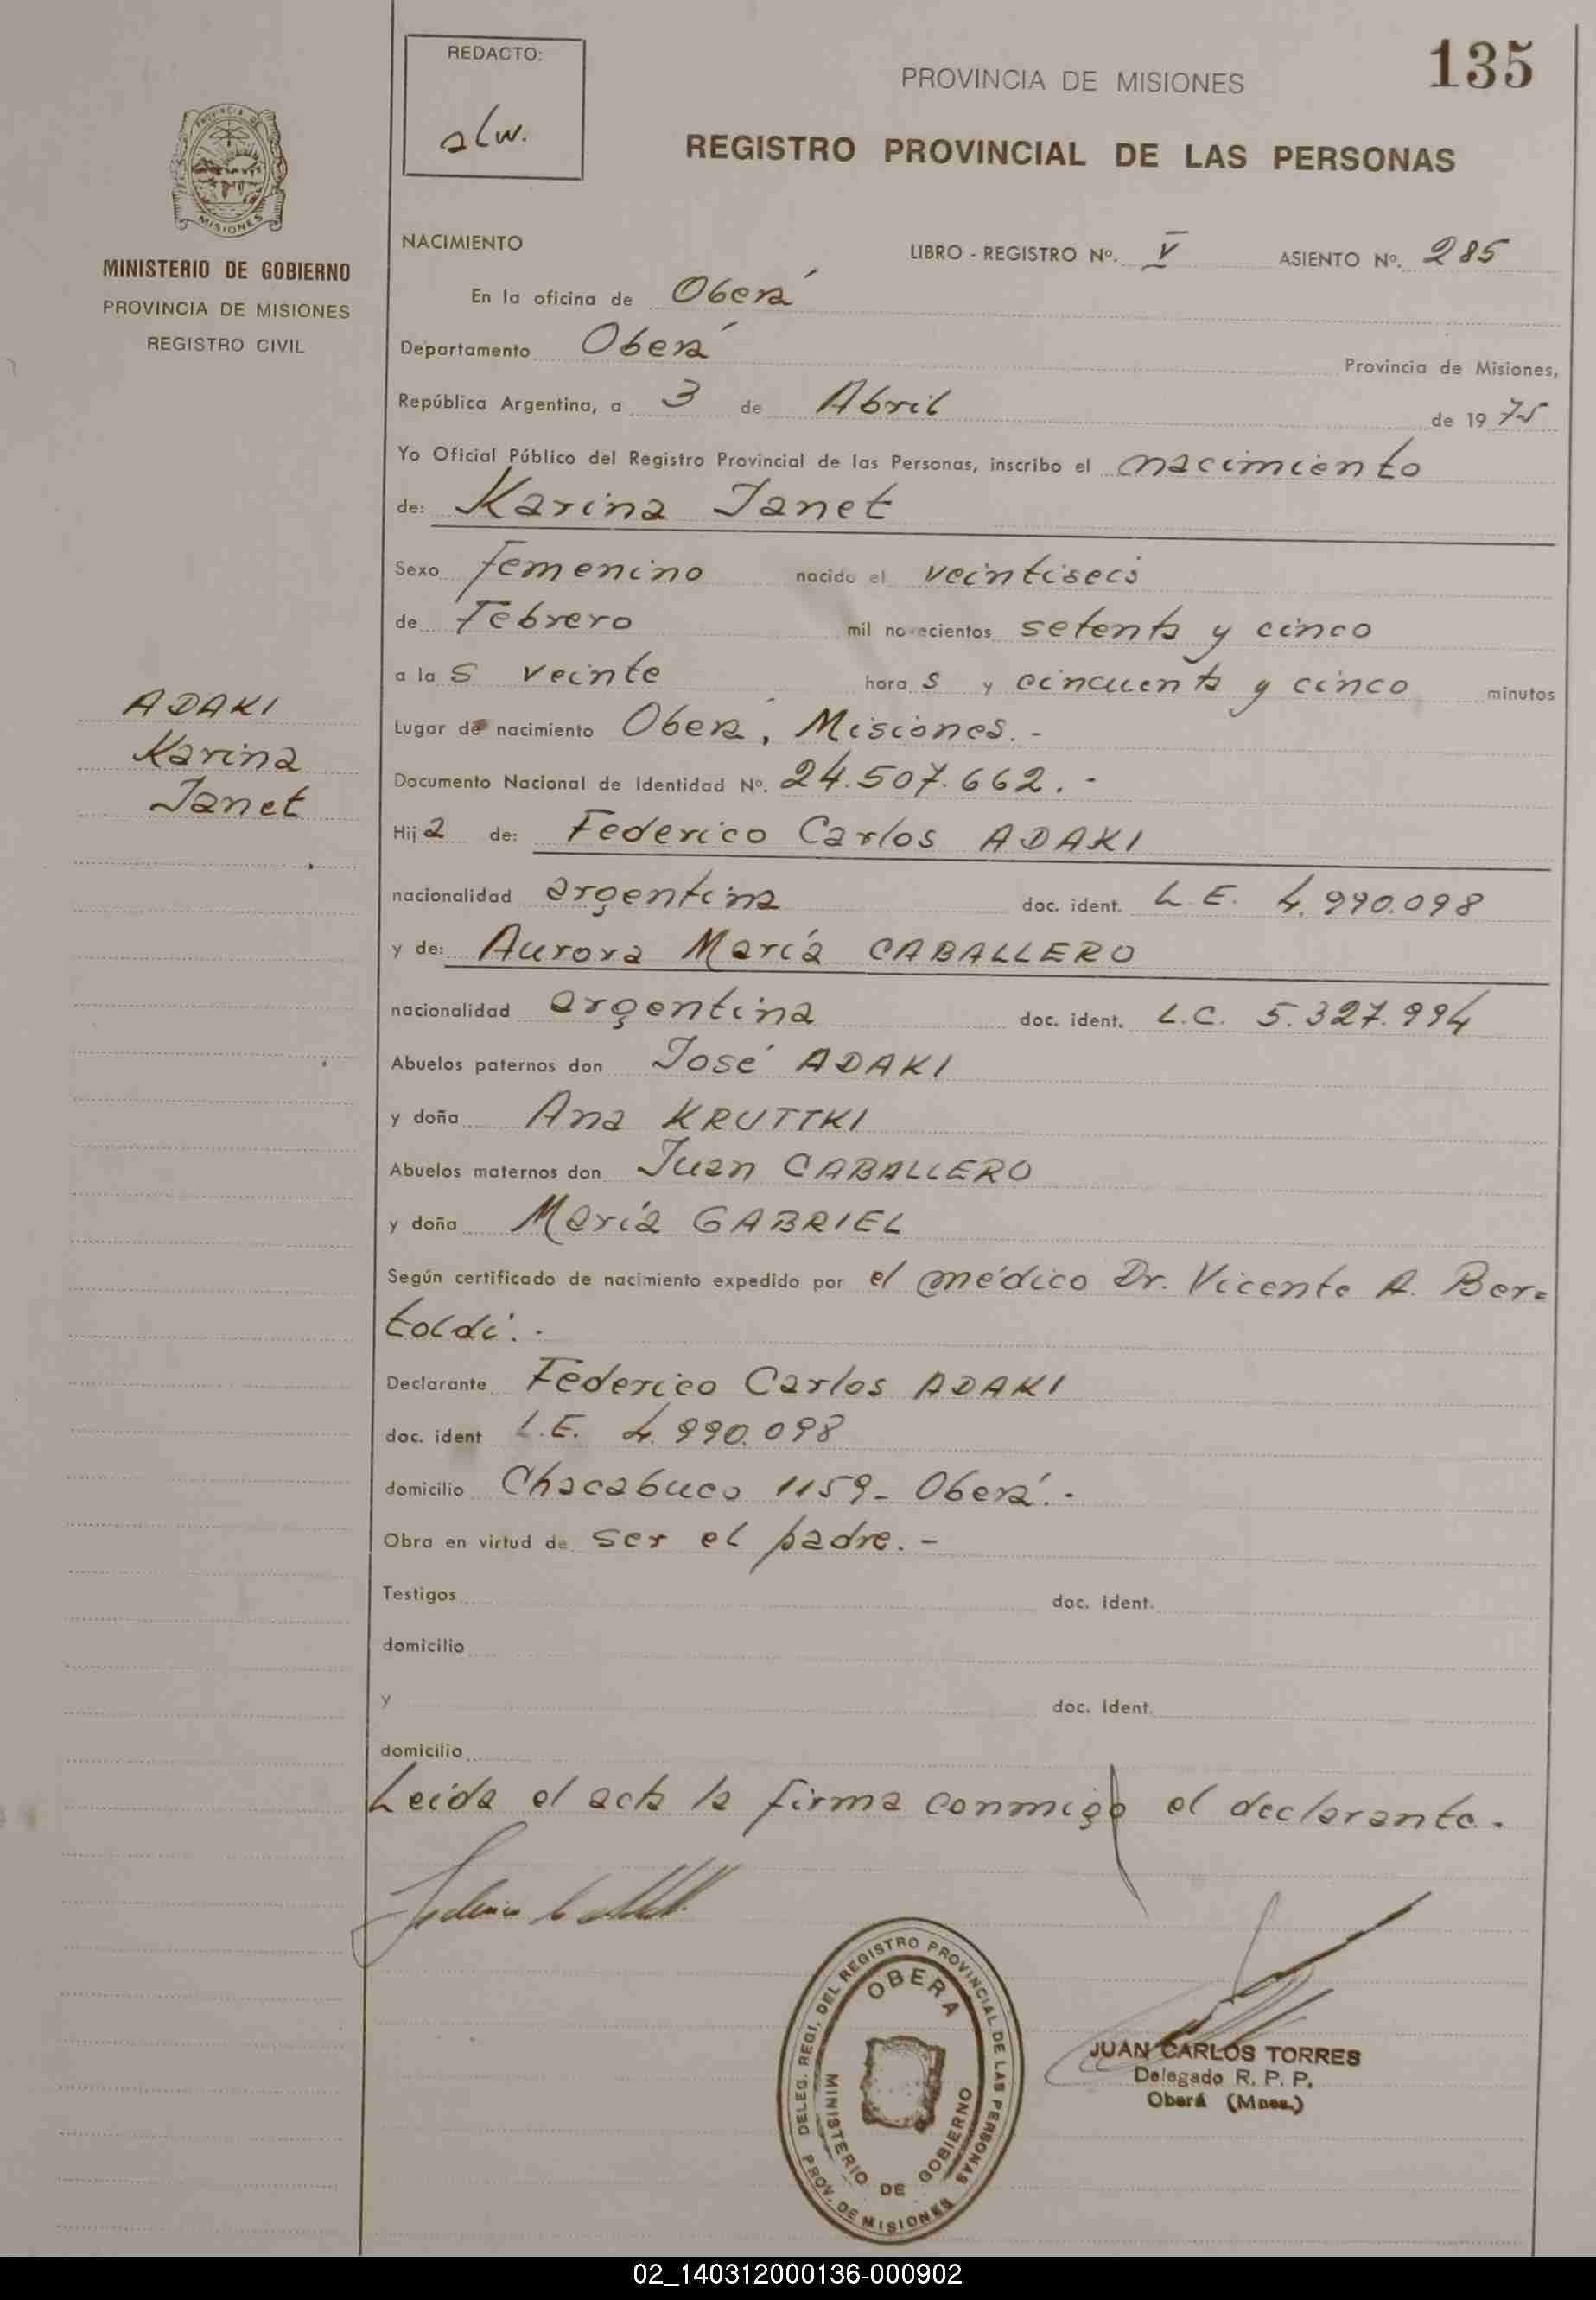 REDACTO:
alw.
PROVINCIA DE MISIONES
135
REGISTRO PROVINCIAL DE LAS PERSONAS
PROVINCIA DE
MISIONES
MINISTERIO DE GOBIERNO
PROVINCIA DE MISIONES
REGISTRO CIVIL
ADAKI
Karina
Janet
NACIMIENTO LIBRO - REGISTRO Nº. V ASIENTO Nº. 285
En la oficina de Oberá
Departamento Oberá Provincia de Misiones,
República Argentina, a 3 de Abril de 1975
Yo Oficial Público del Registro Provincial de las Personas, inscribo el nacimiento
de: Karina Janet
Sexo femenino nacido el veintiseis
de Febrero mil novecientos setenta y cinco
a las veinte horas y cincuenta y cinco minutos
Lugar de nacimiento Oberá, Misiones.-
Documento Nacional de Identidad Nº. 24.507.662.-
Hija de: Federico Carlos ADAKI
nacionalidad argentina doc. ident. L.E. 4.990.098
y de: Aurora María CABALLERO
nacionalidad argentina doc. ident. L.C. 5.327.994
Abuelos paternos don José ADAKI
y doña Ana KRUTTKI
Abuelos maternos don Juan CABALLERO
y doña María GABRIEL
Según certificado de nacimiento expedido por el médico Dr. Vicente A. Ber=
toldi.-
Declarante Federico Carlos ADAKI
doc. ident L.E. 4.990.098
domicilio Chacabuco 1159- Oberá.-
Obra en virtud de ser el padre.-
Testigos doc. ident.
domicilio
y doc. Ident.
domicilio
Leida el acta la firma conmigo el declarante.
DELEG. REGI. DEL REGISTRO PROVINCIAL DE LAS PERSONAS
OBERA
MINISTERIO DE GOBIERNO
PROV. DE MISIONES
JUAN CARLOS TORRES
Delegado R. P. P.
Oberá (Mnes.)
02_140312000136-000902